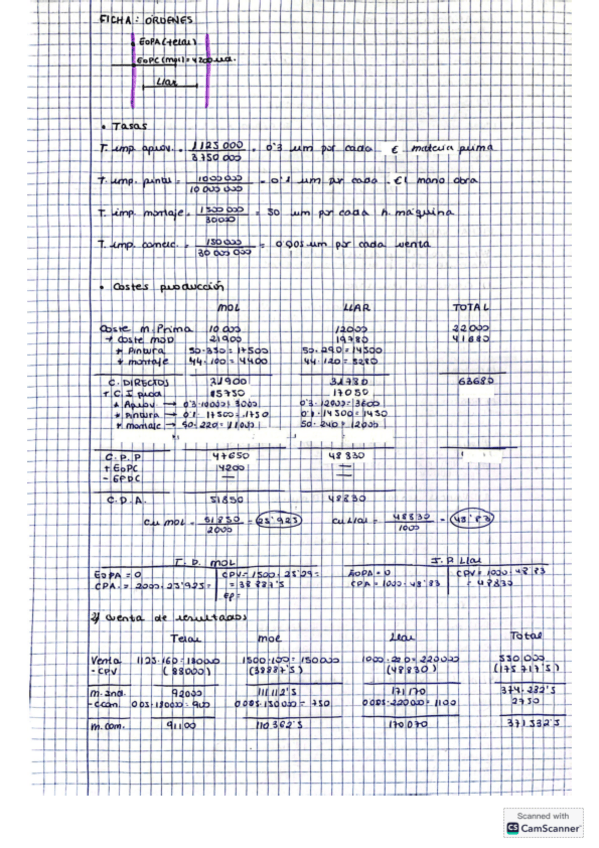 FICHA: ÓRDENES
EOPA (telar)
EOPC (mol) = 4200 um.
Llar
• Tasas
T. imp. aprov. = 1125 000 / 3 750 000 = 0'3 um por cada € materia prima
T. imp. pintu = 1000000 / 10 000 000 = 0'1 um por cada €1 mano obra
T. imp. montaje = 1500 000 / 30000 = 50 um por cada h. máquina
T. imp. comerc. = 150 000 / 30 000 000 = 0'005 um por cada venta
• Costes producción
MOL LLAR TOTAL
Coste M. Prima 10 000 12000 22000
+ Coste MOD 21900 19780 41680
* Pintura 50·350 = 17500 50·290 = 14500
* montaje 44·100 = 4400 44·120 = 5280
C. DIRECTOS 31900 31780 63680
+ C.I prod 15750 17050
* Aprov. → 0'3·10000 = 3000 0'3·12000 = 3600
* Pintura → 0'1·17500 = 1750 0'1·14500 = 1450
* montaje → 50·220 = 11000 50·240 = 12000
C.P.P 47650 48830
+ EOPC 4200 —
- EFPC — —
C.D.A. 51850 48830
Cu mol = 51850 / 2000 = 25'925 Cu Llar = 48830 / 1000 = 48'83
I.P. MOL I.P Llar
EOPA = 0 CPV = 1500·25'925 = EOPA = 0 CPV = 1000·48'83
CPA = 2000·25'925 = = 38887'5 CPA = 1000·48'83 = 48830
EF =
2) Cuenta de resultados
Telar mol Llar Total
Venta 1125·160 = 180000 1500·100 = 150000 1000·220 = 220000 550 000
- CPV (88000) (38887'5) (48830) (175 717'5)
m. ind. 92000 111112'5 171170 374·282'5
- Ccom. 0'005·180000 = 900 0'005·150000 = 750 0'005·220000 = 1100 2750
m. com. 91100 110362'5 170070 371532'5
Scanned with
CS CamScanner